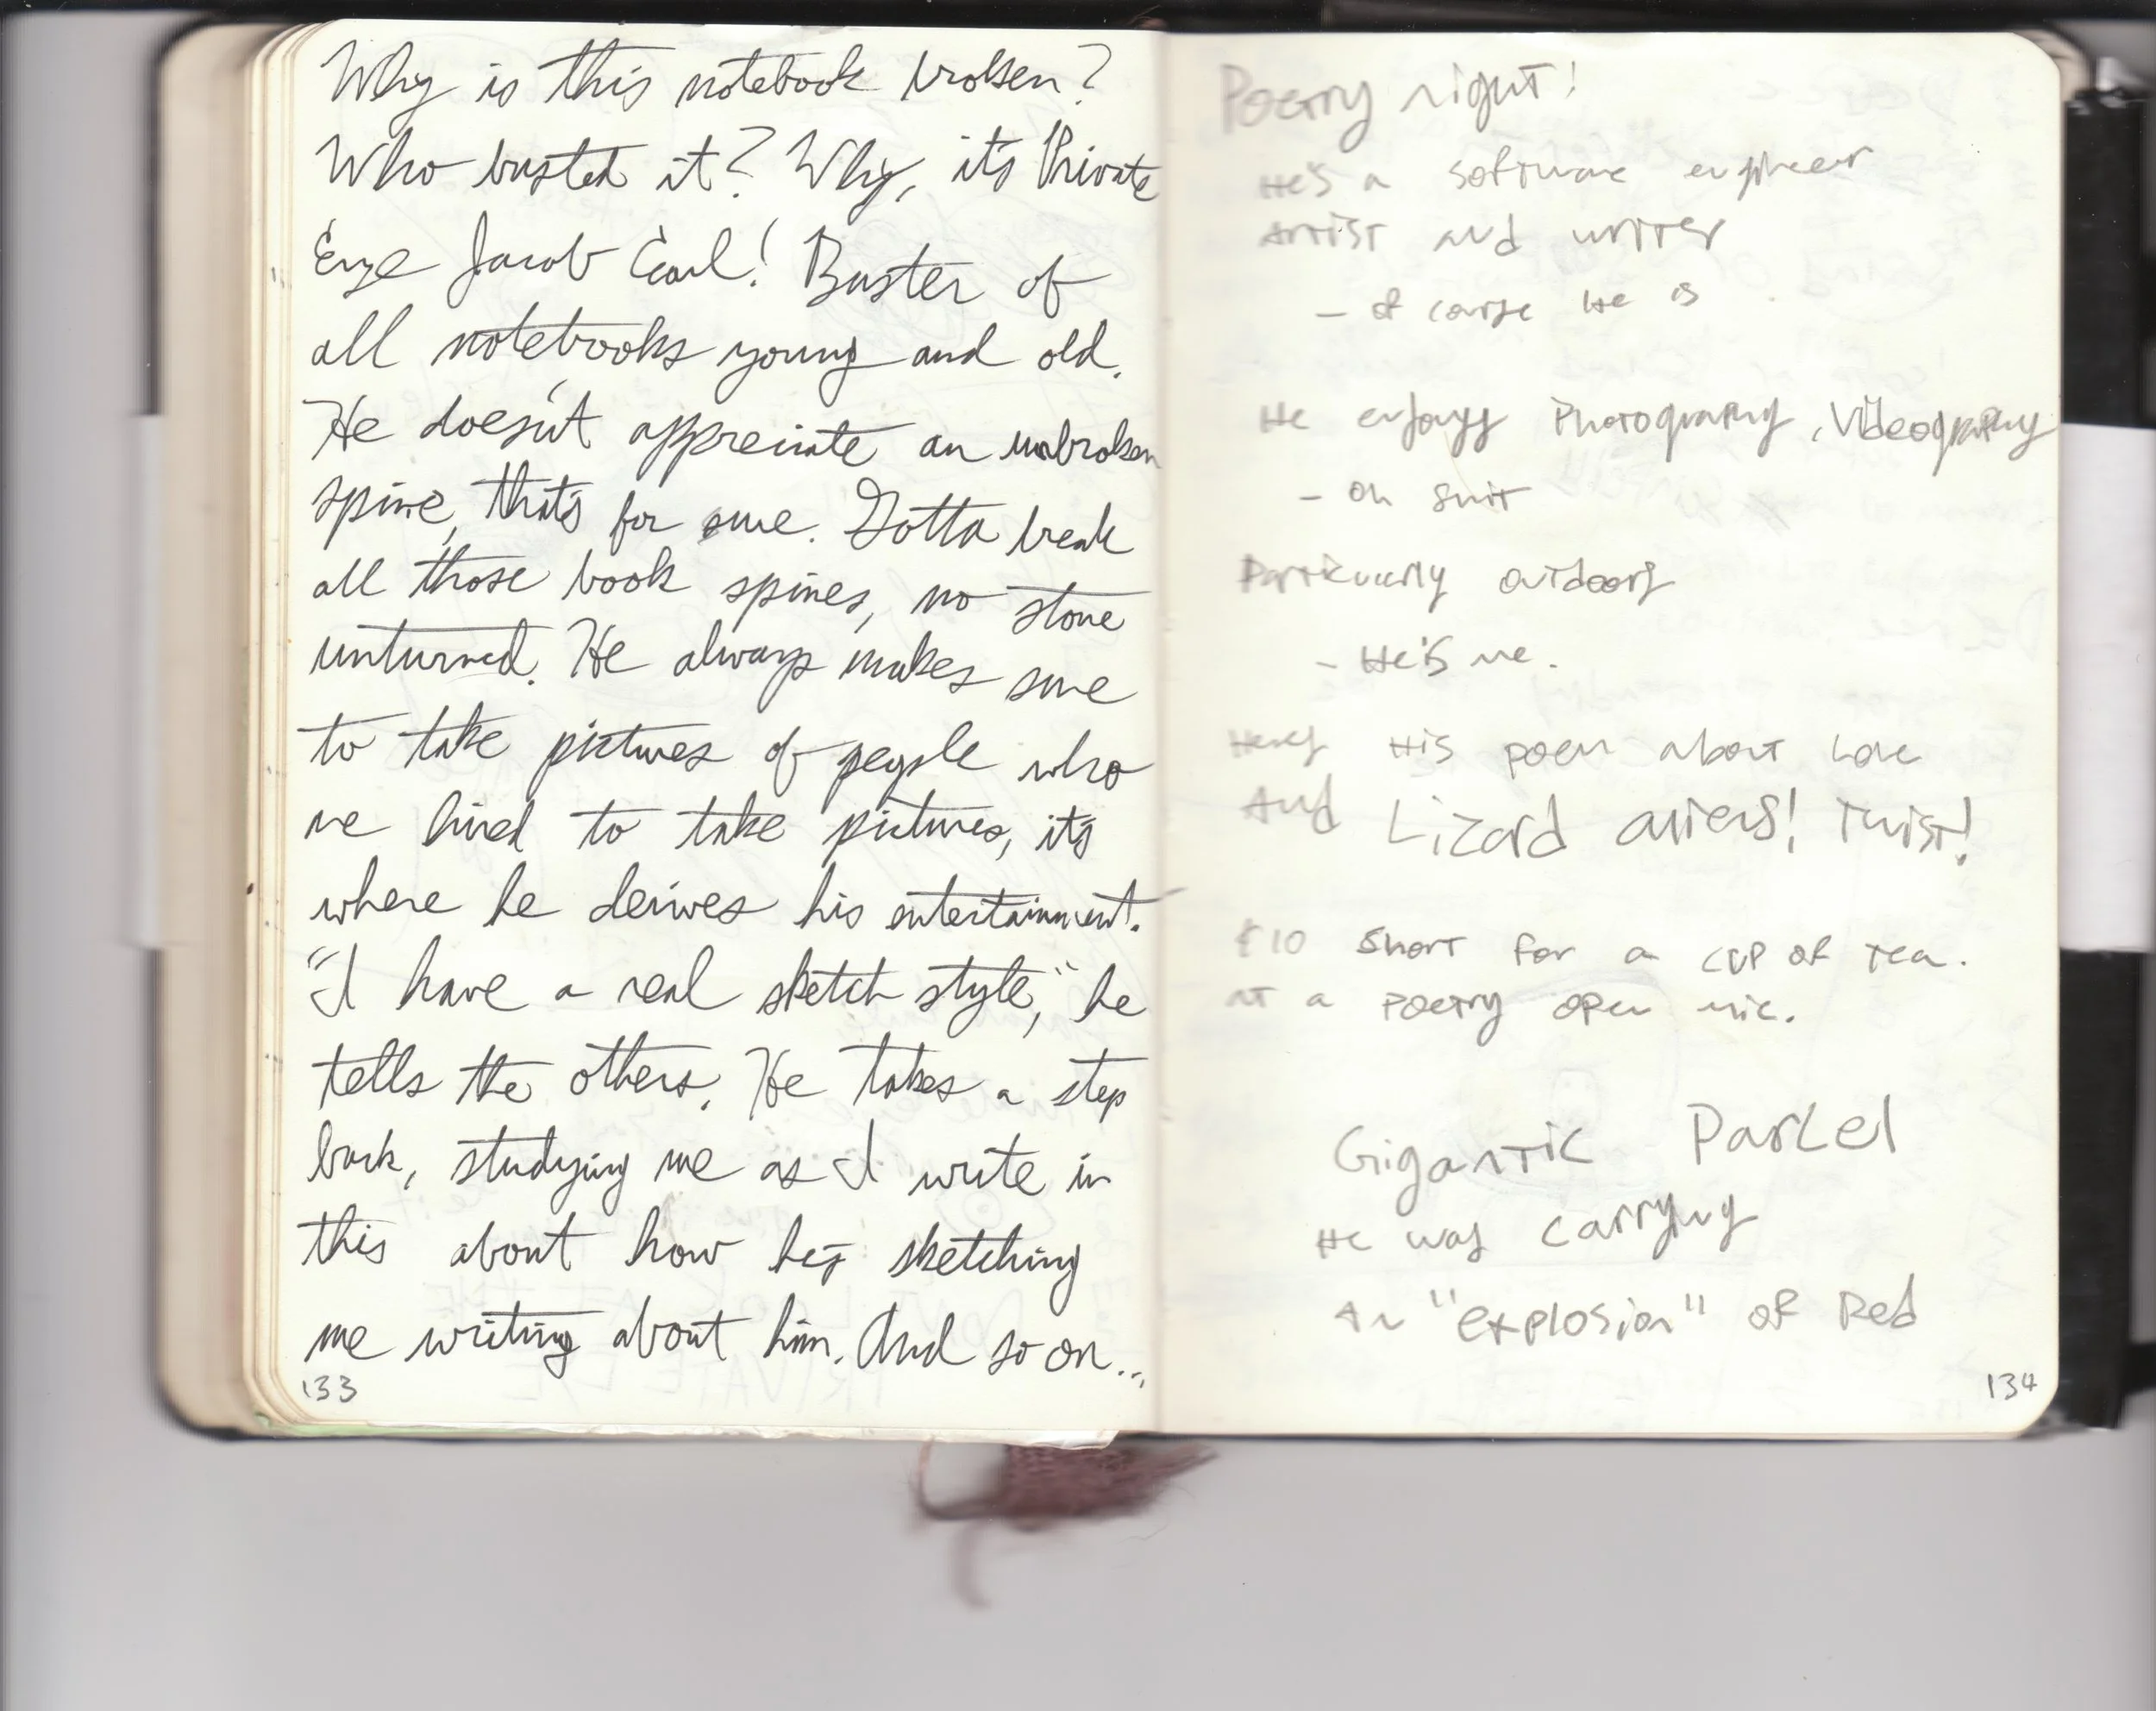 Why is this notebook broken?
Who busted it? Why, it's Private
Eye Jacob Earl! Buster of
all notebooks young and old.
He doesn't appreciate an unbroken
spine, that's for sure. Gotta break
all those book spines, no stone
unturned. He always makes sure
to take pictures of people who
we hired to take pictures, it's
where he derives his entertainment.
"I have a real sketch style," he
tells the others. He takes a step
back, studying me as I write in
this about how he's sketching
me writing about him. And so on...
133
Poetry night!
He's a software engineer
Artist and writer
- of course he is
He enjoys Photography, Videography
- oh shit
Particularly outdoors
- He's me.
Here's His poem about love
And Lizard aliens! Twist!
£10 short for a cup of tea.
at a poetry open mic.
Gigantic Parcel
He was carrying
An "explosion" of Red
134